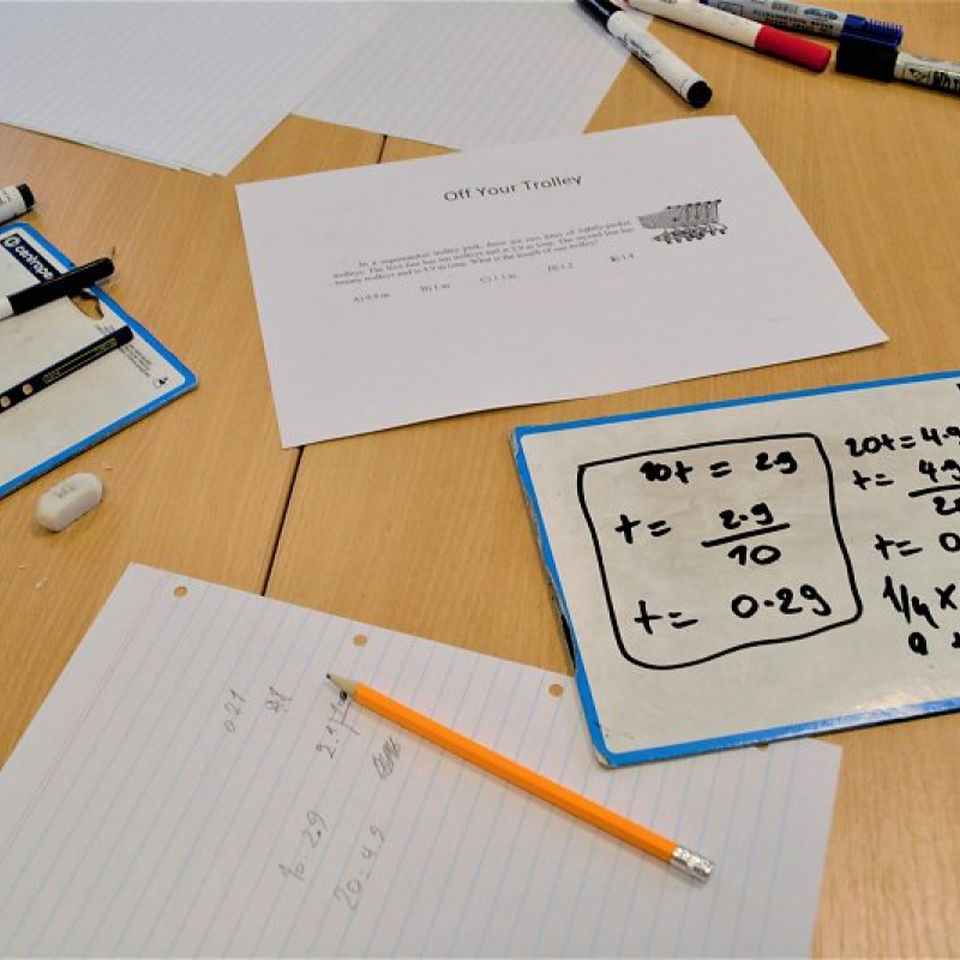 Off Your Trolley
In a supermarket trolley park, there are two lines of tightly-packed
trolleys. The first line has ten trolleys and is 2.9 m long. The second line has
twenty trolleys and is 4.9 m long. What is the length of one trolley?
A) 0.8 m B) 1 m C) 1.1 m D) 1.2 E) 1.4
centrope
10t = 29
t = 2.9
10
t = 0.29
20t = 4.9
t = 4.9
t = 0
1/4 X
0.21
2.9
10 = 2.9
20 = 4.9